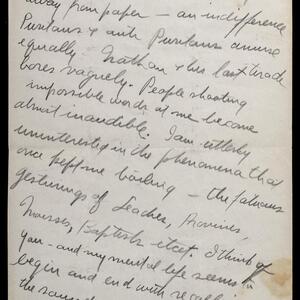 away from paper — an indifference
Puritans & anti Puritans amuse
equally. Nathan & his last tirade
bores vaguely. People shouting
impossible words at me become
almost inaudible. I am utterly
uninterested in the phenomena that
once kept me barking — the famous
gesturings of Leaches,
Masses, Baptists etcet. I think of
you — and my mental life seems to
begin and end with recalling
the